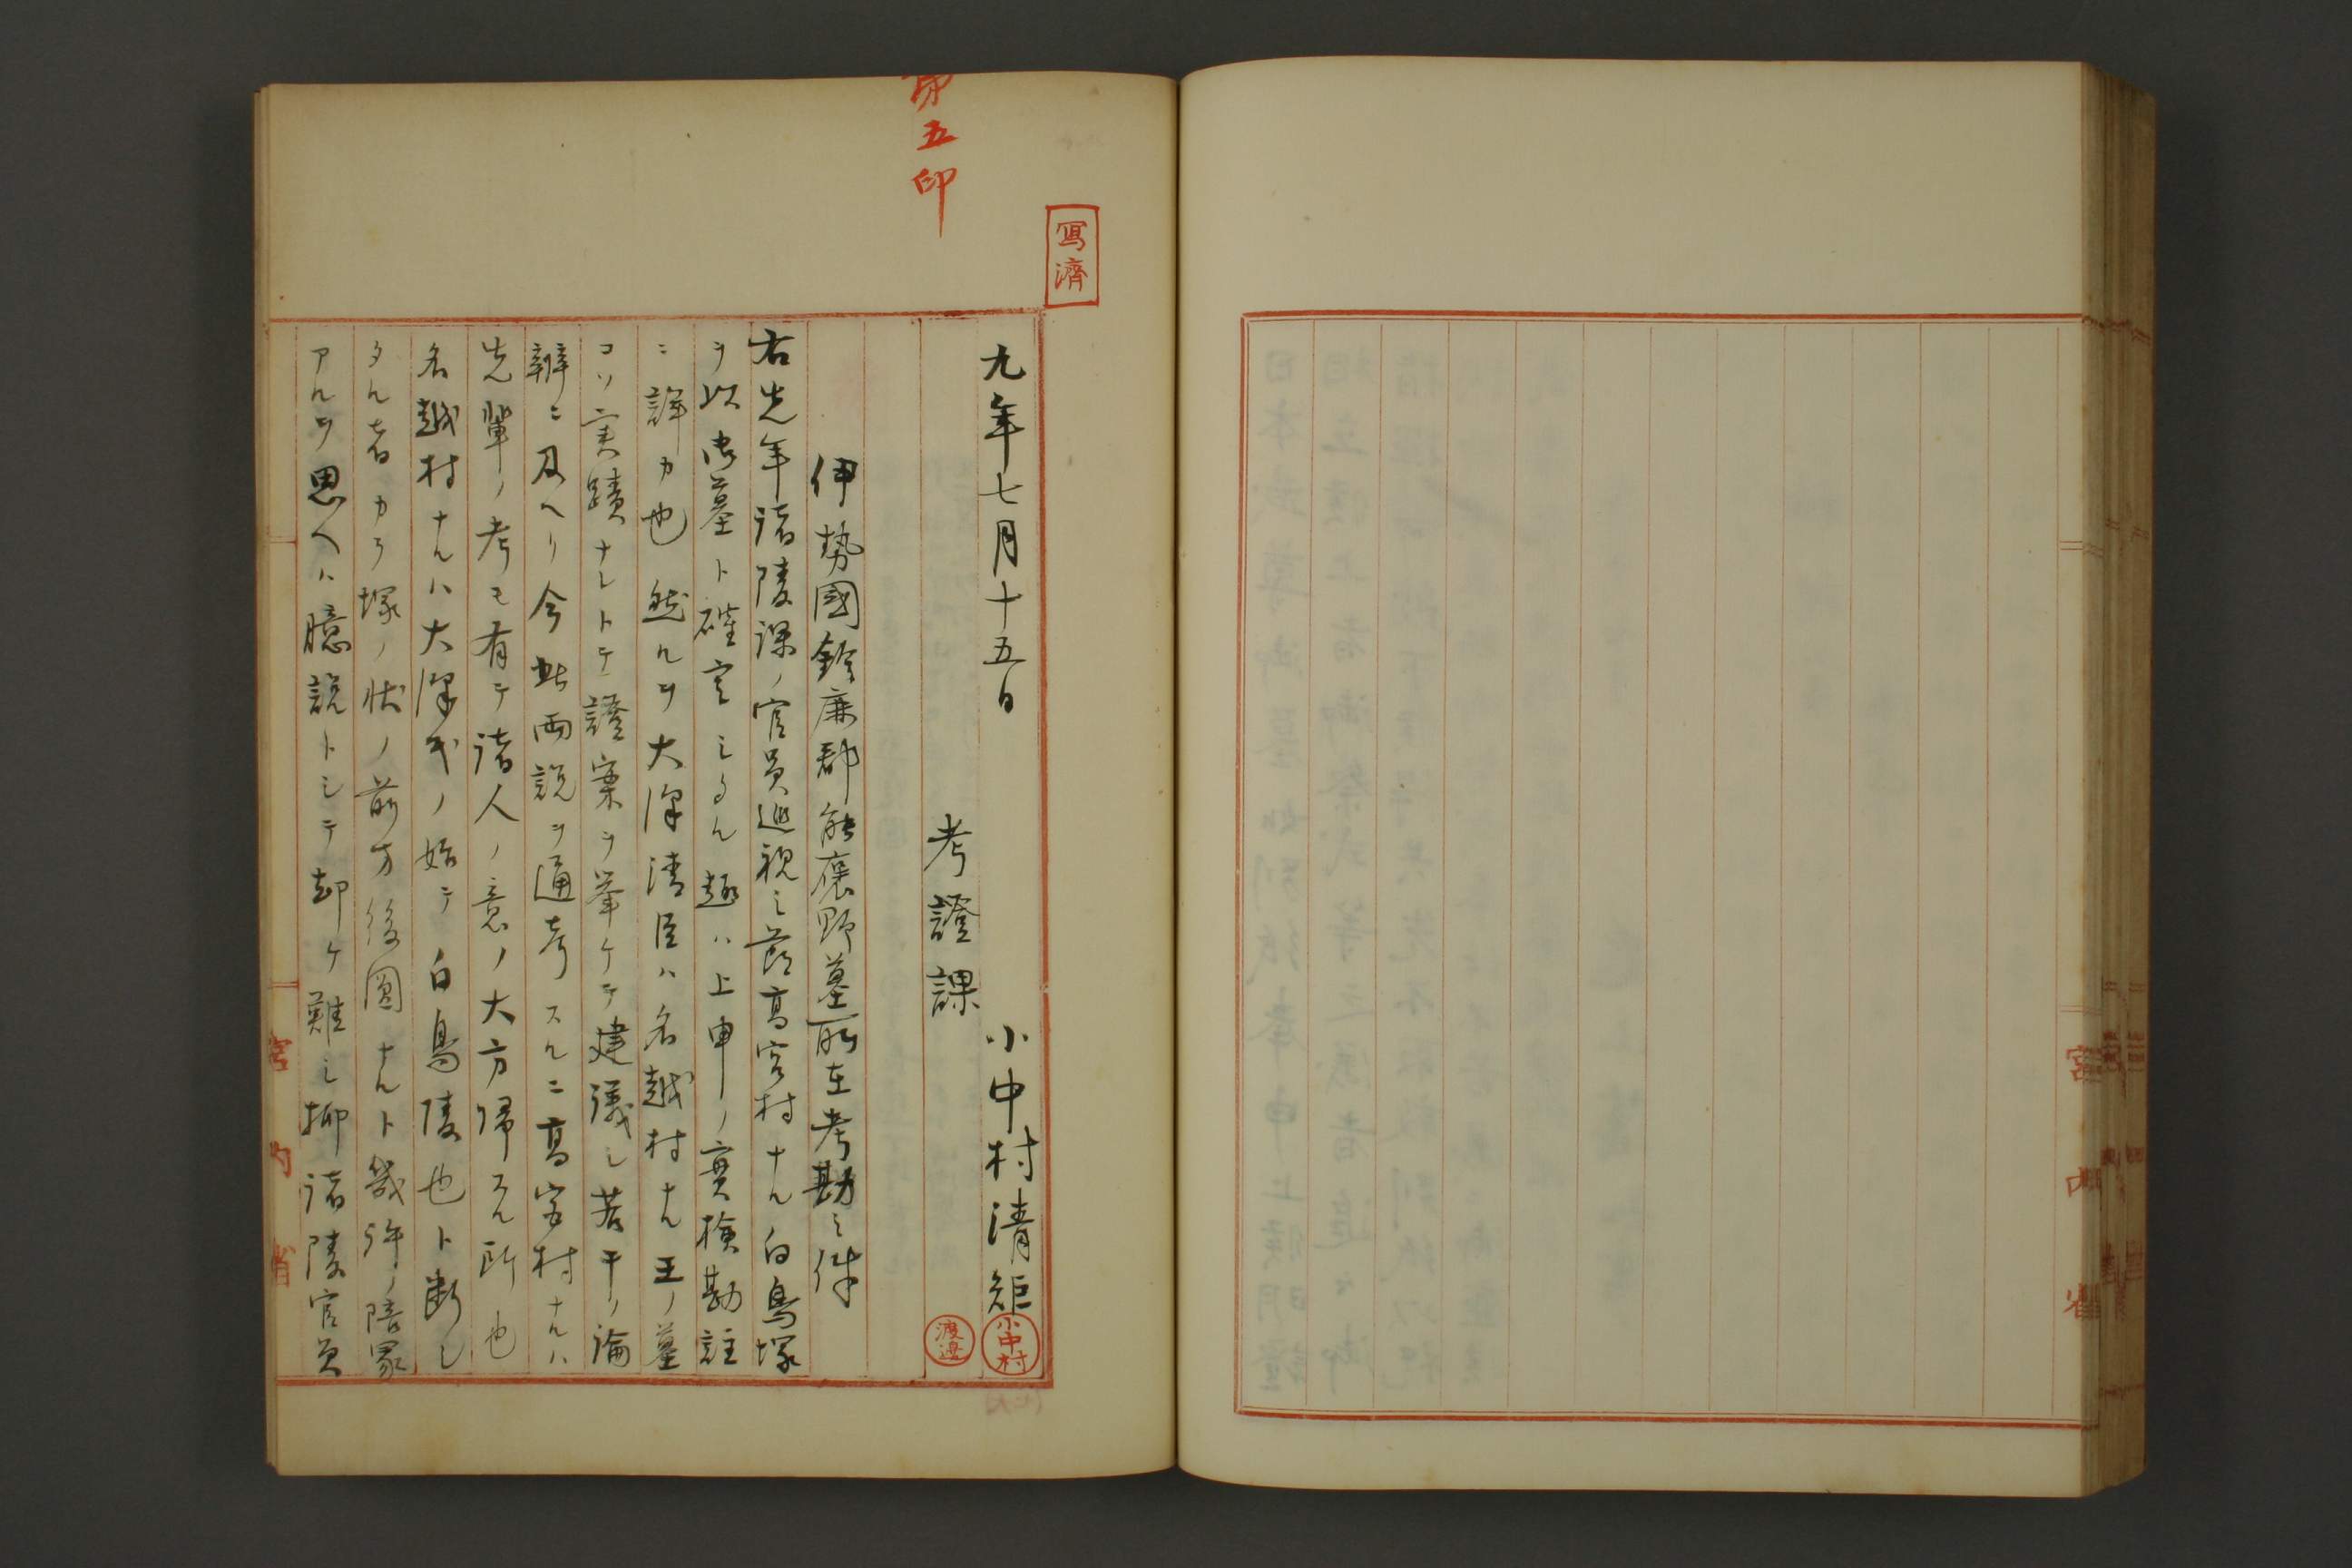 第五印
寫濟
九年七月十五日
小中村清矩
小中村
考證課
渡邉
伊勢國鈴鹿郡能褒野墓所在考勘之件
右先年諸陵課ノ官員巡視之節高宮村ナル白鳥塚
ヲ以御墓ト確定シタル趣ハ上申ノ實檢勘註
ニ詳カ也然ルヲ大澤清臣ハ名越村ナル王ノ墓
コソ実蹟ナレトテ證案ヲ举ケテ建議シ若干ノ論
辨ニ及ヘリ今此両説ヲ通考スルニ高宮村ナルハ
先輩ノ考モ有テ諸人ノ意ノ大方帰スル所也
名越村ナルハ大澤氏ノ始テ白鳥陵也ト断シ
タル者カラ塚ノ状ノ前方後圓ナルト幾許ノ陪冢
アルヲ思ヘハ臆説トシテ却ケ難シ抑諸陵官員
宮内省
宮内省